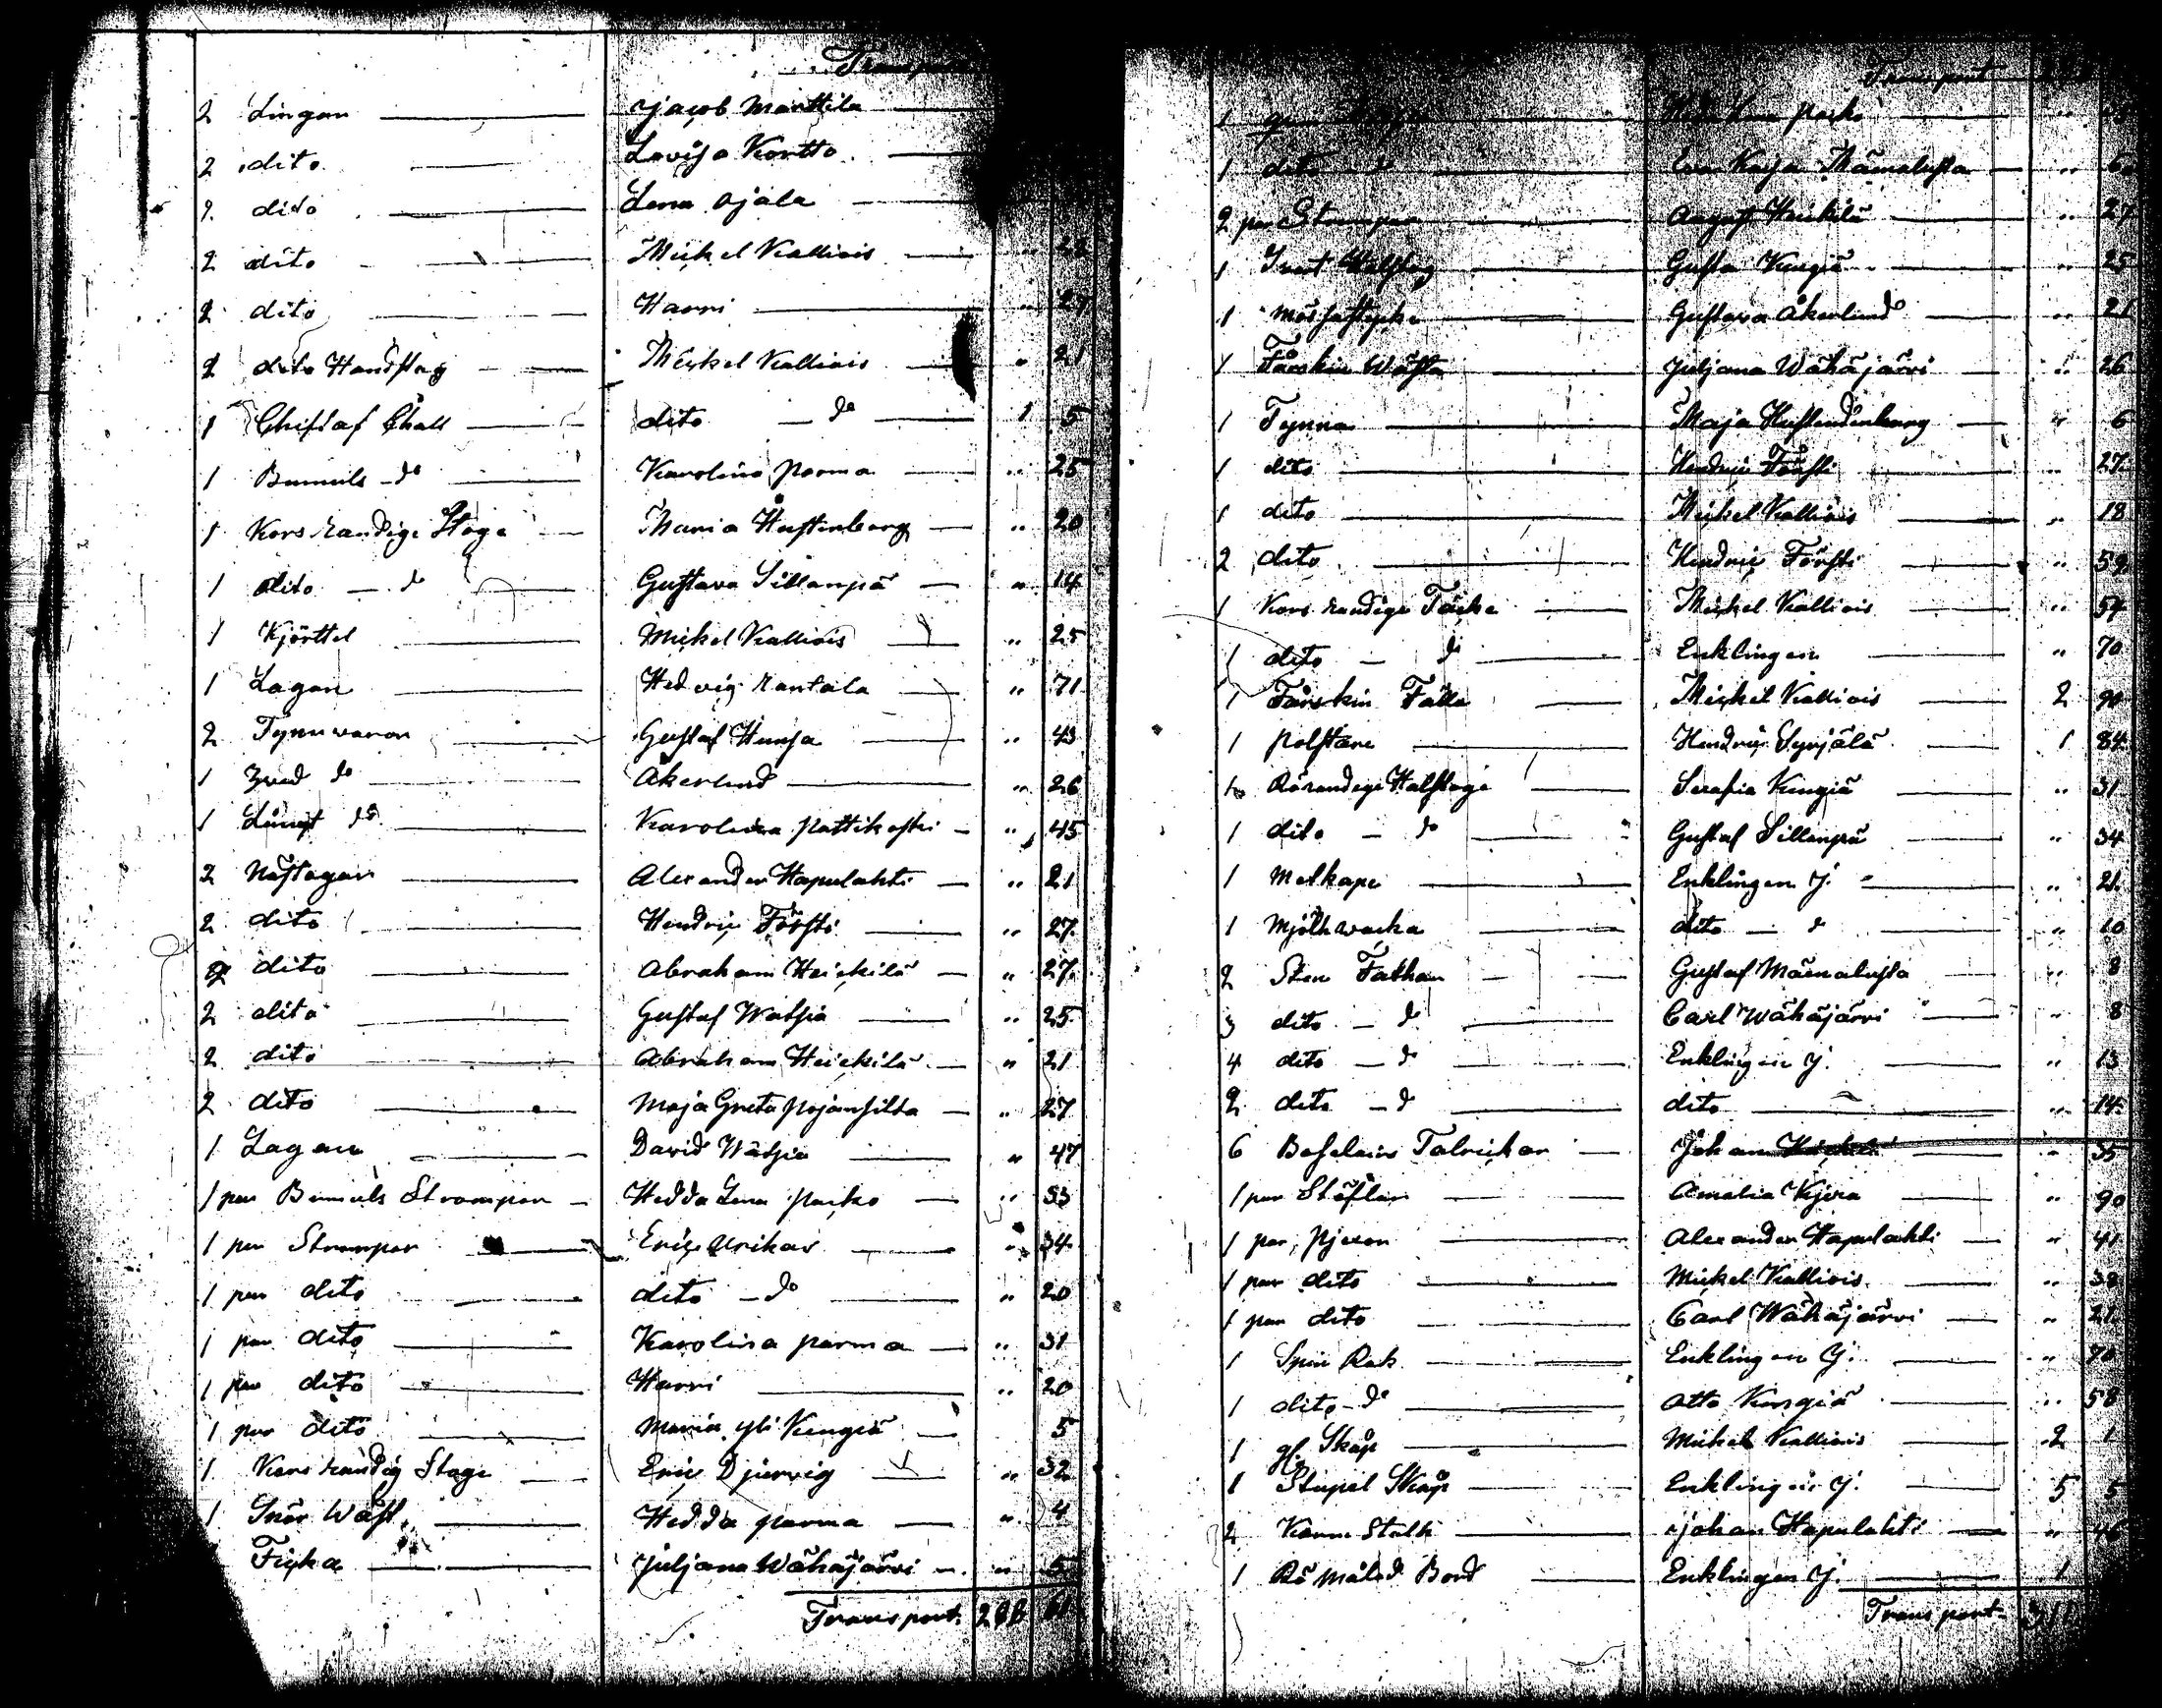 Transport
2 Lingon Jacob Marttila
2 dito Lovisa Kortto
2 dito Lena Ojala
2 dito Mickel Kalliois „ 28
2 dito Harri „ 27
2 dito Handslag Mickel Kalliois „ 21
1 Chistaf Chall dito do 1 5
1 Bumuls do Karolina Parma „ 25
1 Kors randige Stoge Maria Hustenberg „ 20
1 dito do Gustava Sillanpä „ 14
1 Kjörttel Mickel Kalliois „ 25
1 Lagan Hedvig Rantala „ 71
2 Tynnwaron Gustaf Hunsa „ 43
1 do Åkerlund „ 26
1 do Karolina Pattikoski „ 45
2 Nästagar Alexander Hapulahti „ 21
2 dito Hendric Försti „ 27
2 dito Abraham Heickilä „ 27
2 dito Gustaf Watsia „ 25
2 dito Abraham Heickilä „ 21
2 dito Maja Greta Pojansilta „ 27
1 Lagan David Watsia „ 47
1 par Bumuls Strompor Hedda Lena Pasko „ 53
1 par Strumpor Eric Urikar „ 34
1 par dito dito do „ 20
1 par dito Karolina Parma „ 31
1 par dito Harri „ 20
1 par dito Maria Yli Kengiä 5
1 Kors randig Stoge Eric Djervig „ 32
1 Snör Wäst Hedda Parma „ 4
Ficka Juljana Wähäjärvi „ 5
Transport 288 61
Transport
1 Hedda Lena Pasko „
1 dito do Eva Kajsa Mämalusta „ 6
2 par Strumpor August Heickilä „ 27
1 Gusta Kengiä „ 25
1 Mössastycke Gustava Åkerlund „ 21
1 Fårskin Wästa Juljana Wähäjärvi „ 26
1 Tynna Maja Hustendenberg „ 6
1 dito Hendric Försti „ 27
1 dito Mickel Kalliois „ 18
2 dito Hendric Försti „ 52
1 Kors randige Täcke Mickel Kalliois „ 54
1 dito do Enklingen „ 70
1 Fårskin Fälla Mickel Kalliois 2 90
1 Polstare Hendric Syrjälä 1 84
1 Rörandige Halstoge Serafia Kengiä „ 31
1 dito do Gustaf Sillanpä „ 34
1 Melkape Enklingen J. „ 21
1 Mjölkwacka dito do „ 10
2 Sten Fathan Gustaf Mämalusta „ 8
3 dito do Carl Wähäjärvi „ 8
4 dito do Enklingen J. „ 13
2 dito do dito „ 14
6 Boselains Talrickar Johan „ 35
1 par Stöflar Amalia Kjera „ 90
1 par Pjexon Alexander Hapulahti „ 41
1 par dito Mickel Kalliois „ 38
1 par dito Carl Wähäjärvi „ 21
1 Spin Rok Enklingen J. „ 70
1 dito do Otto Kengiä „ 58
1 gl. Skåp Mickel Kalliois 2 1
1 Stupel Skåp Enklingen J. 5 5
2 Karm Stolk Johan Hapulahti „ 46
1 Rö målad Bord Enklingen J. 1
Transport